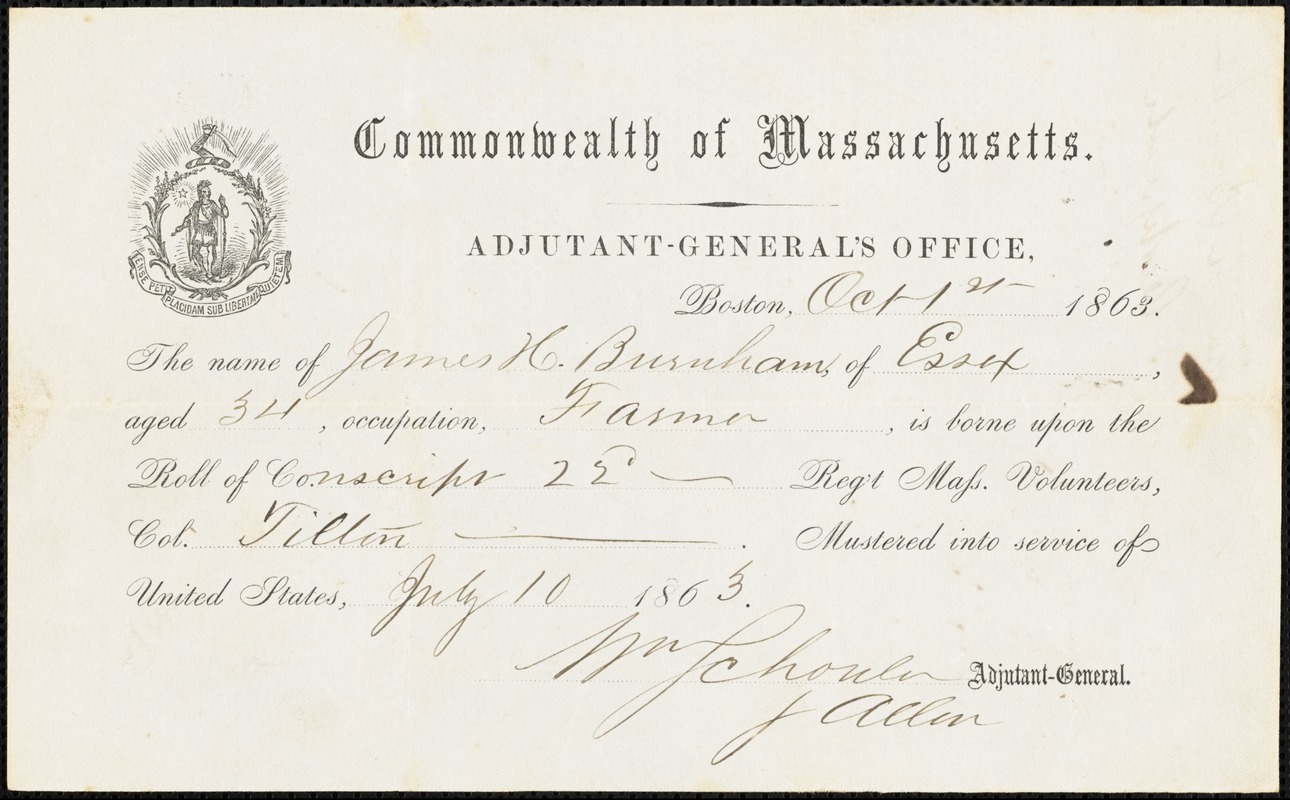 Commonwealth of Massachusetts.
ENSE PETIT PLACIDAM SUB LIBERTATE QUIETEM
ADJUTANT-GENERAL'S OFFICE,
Boston, Oct 1st 1863.
The name of James H. Burnham, of Essex,
aged 34, occupation, Farmer, is borne upon the
Roll of Conscript 22d Reg't Mass. Volunteers,
Col. Tilton. Mustered into service of
United States, July 10 1863.
Wm Schouler Adjutant-General.
Allen